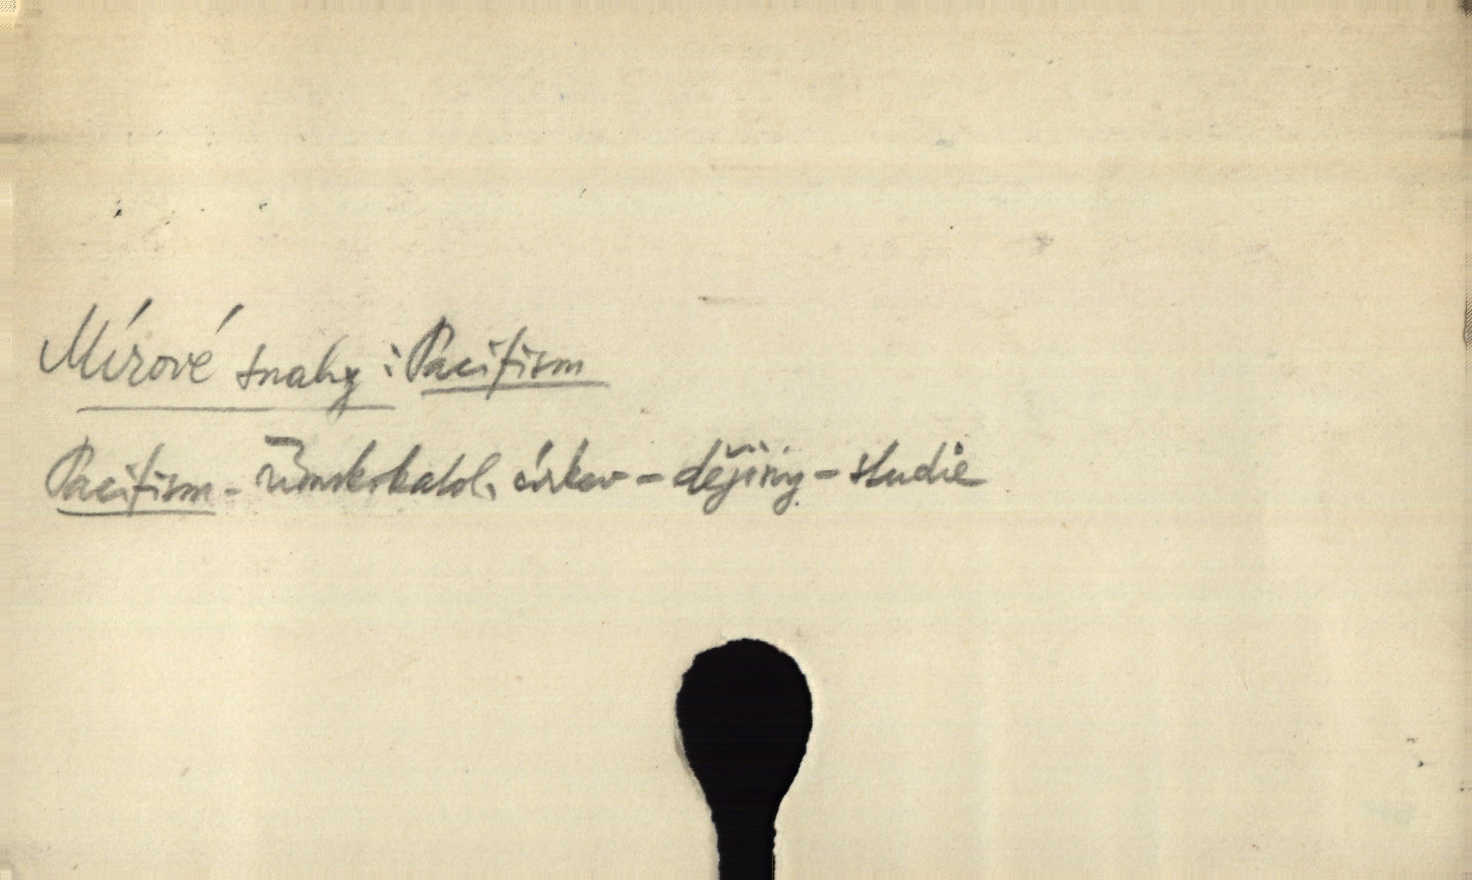 Mírové snahy i Pacifism
Pacifism - římskokatol. církev - dějiny - studie